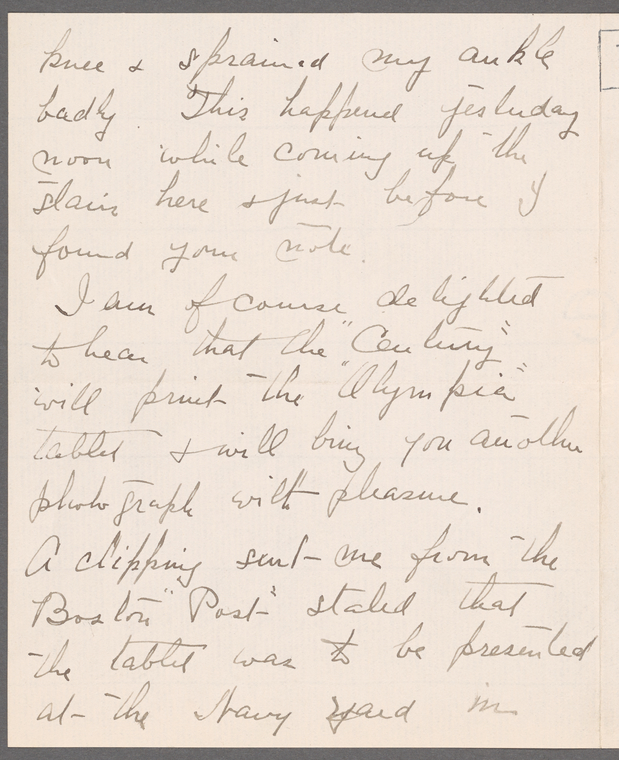 knee & sprained my ankle
badly. This happend yesterday
noon while coming up the
stairs here & just before I
found your note.
I am of course delighted
to hear that the "Century"
will print the "Olympia"
tablet & will bring you another
photograph with pleasure.
A clipping sent me from the
Boston "Post" stated that
the tablet was to be presented
at the Navy Yard in